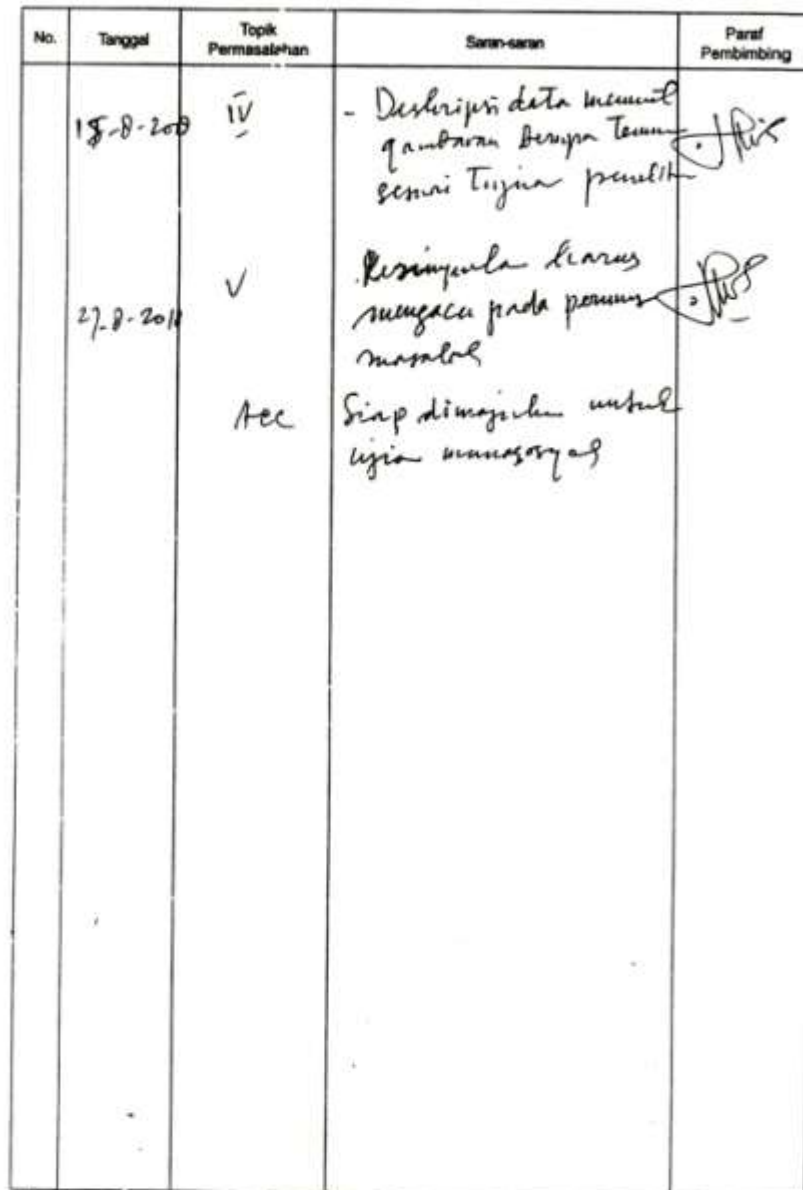 No. Tanggal Topik Permasalahan Saran-saran Paraf Pembimbing
IV - Deskripsi data memuat
gambaran berupa
sesuai Tujuan penelit
V Kesimpula harus
27-8-2018 mengacu pada
masalah
Acc Siap dimajukan untuk
ujian munaqosyah